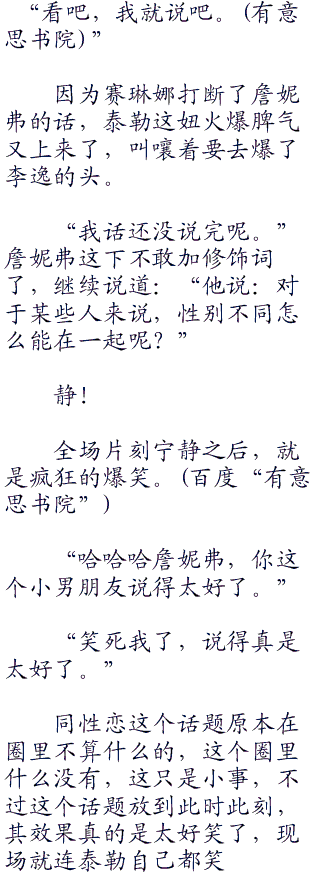 “看吧，我就说吧。(有意
思书院)”
因为赛琳娜打断了詹妮
弗的话，泰勒这妞火爆脾气
又上来了，叫嚷着要去爆了
李逸的头。
“我话还没说完呢。”
詹妮弗这下不敢加修饰词
了，继续说道：“他说：对
于某些人来说，性别不同怎
么能在一起呢？”
静！
全场片刻宁静之后，就
是疯狂的爆笑。(百度“有意
思书院”)
“哈哈哈詹妮弗，你这
个小男朋友说得太好了。”
“笑死我了，说得真是
太好了。”
同性恋这个话题原本在
圈里不算什么的，这个圈里
什么没有，这只是小事，不
过这个话题放到此时此刻，
其效果真的是太好笑了，现
场就连泰勒自己都笑